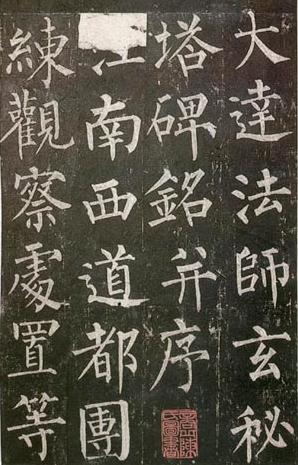 大達法師玄秘
塔碑銘并序
江南西道都團
練觀察處置等